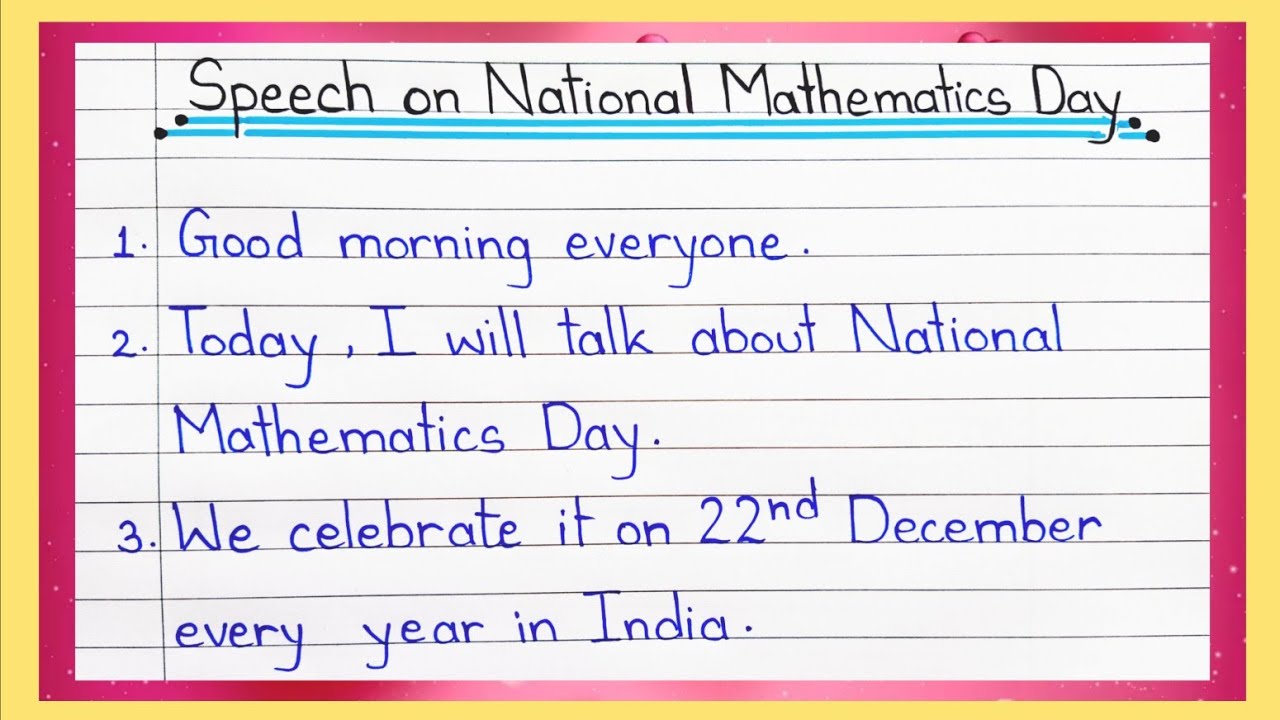 Speech on National Mathematics Day.
1. Good morning everyone.
2. Today, I will talk about National
Mathematics Day.
3. We celebrate it on 22nd December
every year in India.